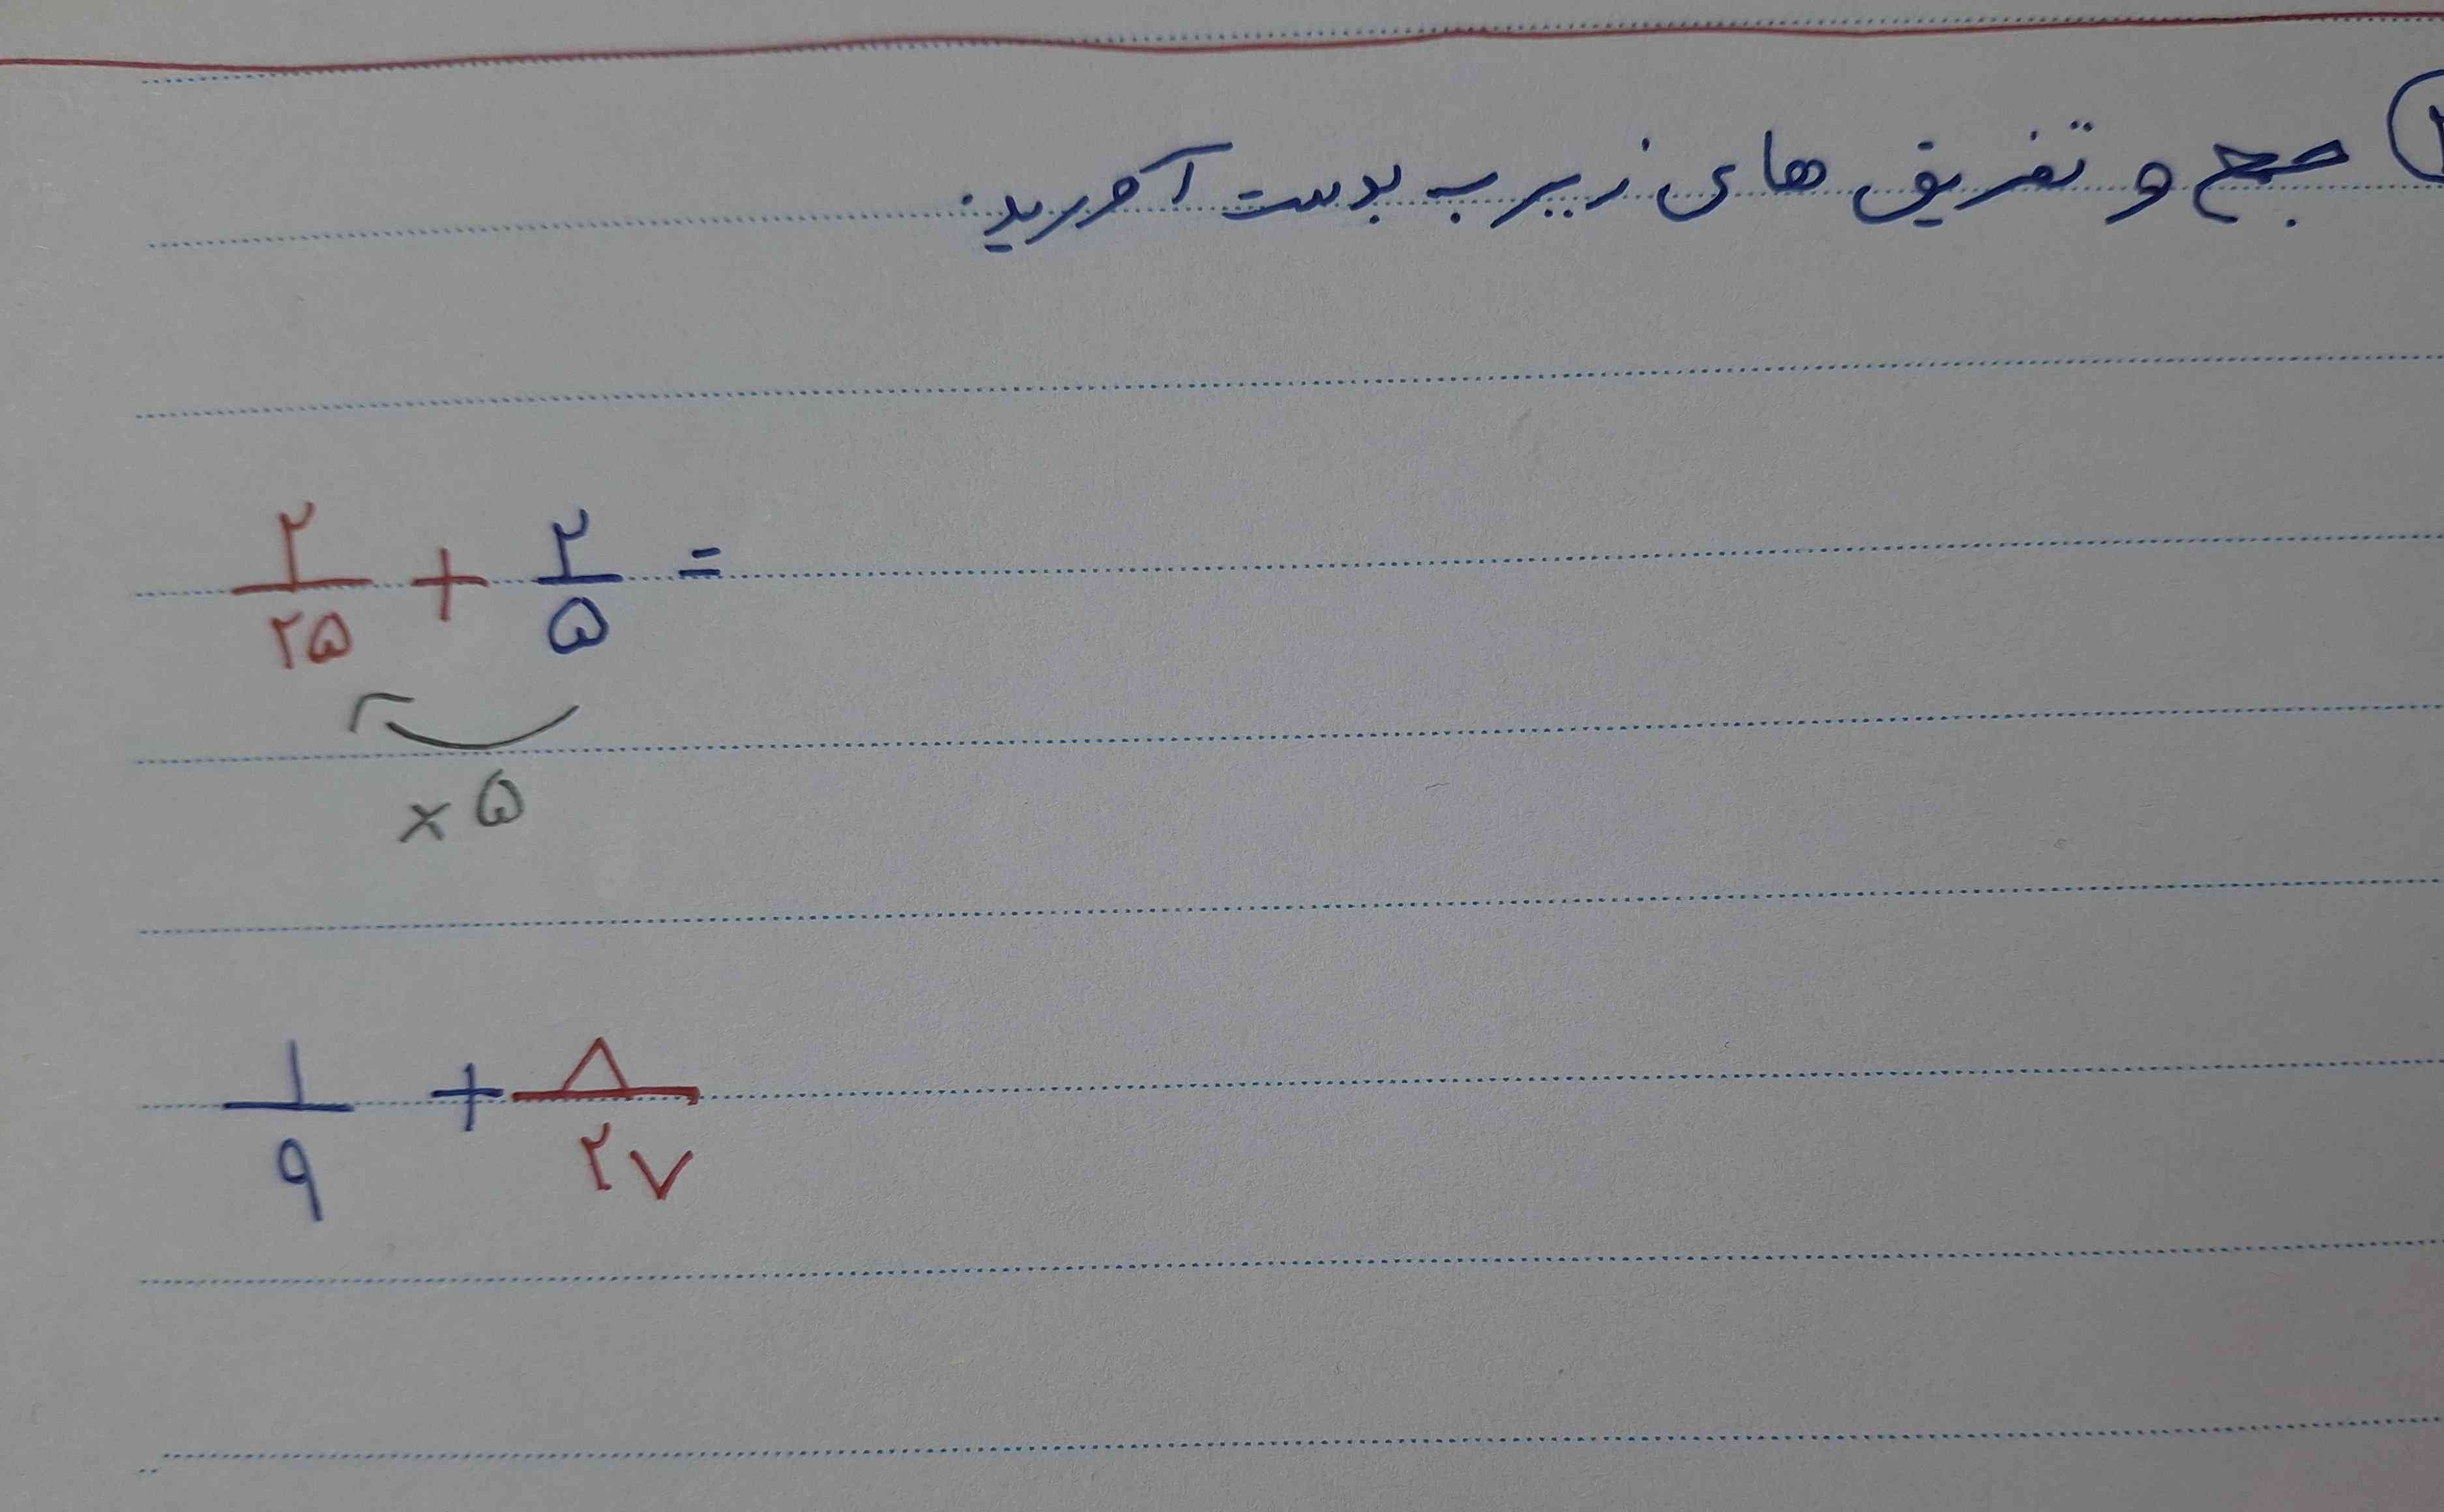 جمع و تفریق های زیر ب بدست آورید.
۲/۲۵ + ۲/۵ =
×۵
۱/۹ + ۸/۲۷